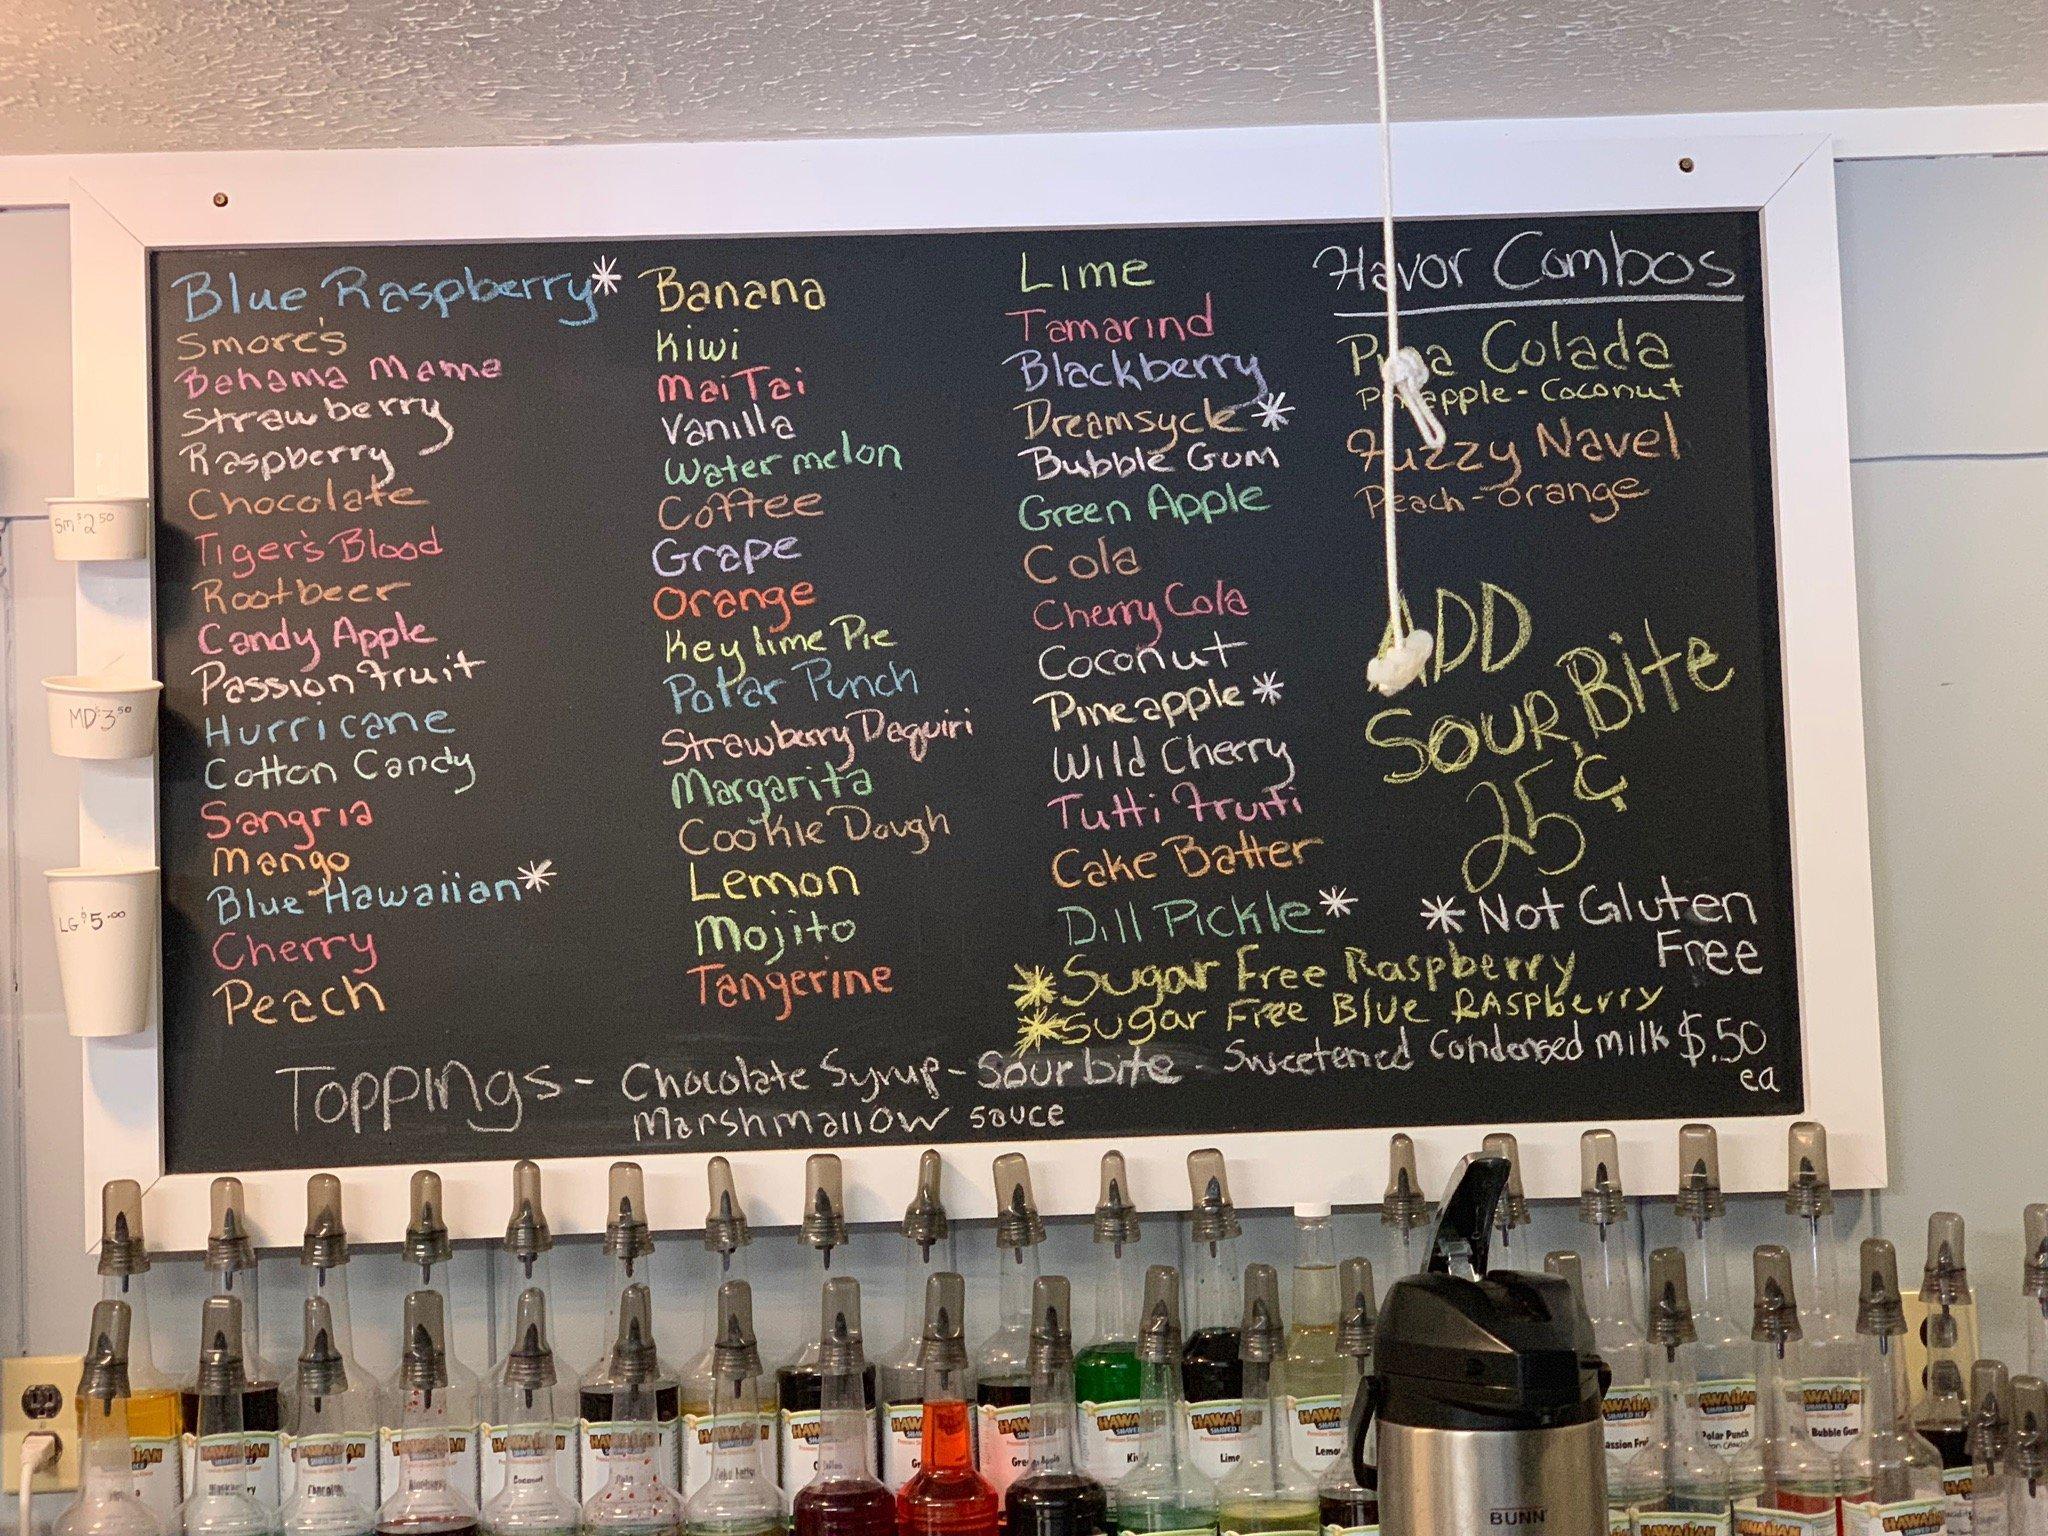 Blue Raspberry*
Smore's
Bahama Mama
Strawberry
Raspberry
Chocolate
Tiger's Blood
Rootbeer
Candy Apple
Passion Fruit
Hurricane
Cotton Candy
Sangria
Mango
Blue Hawaiian*
Cherry
Peach
Banana
Kiwi
Mai Tai
Vanilla
Watermelon
Coffee
Grape
Orange
Key lime Pie
Polar Punch
Strawberry Daquiri
Margarita
Cookie Dough
Lemon
Mojito
Tangerine
Lime
Tamarind
Blackberry
Dreamsycle*
Bubble Gum
Green Apple
Cola
Cherry Cola
Coconut
Pineapple*
Wild Cherry
Tutti Fruiti
Cake Batter
Dill Pickle*
*Sugar Free Raspberry
*Sugar Free Blue Raspberry
Flavor Combos
Pina Colada
Pineapple-Coconut
Fuzzy Navel
Peach-orange
ADD
SOUR Bite
25¢
*Not Gluten
Free
Toppings - Chocolate Syrup - Sour bite - Sweetened Condensed milk $.50
ea
Marshmallow sauce
Sm $2.50
MD $3.50
LG $5.00
Lime
Polar Punch
Bubble Gum
BUNN